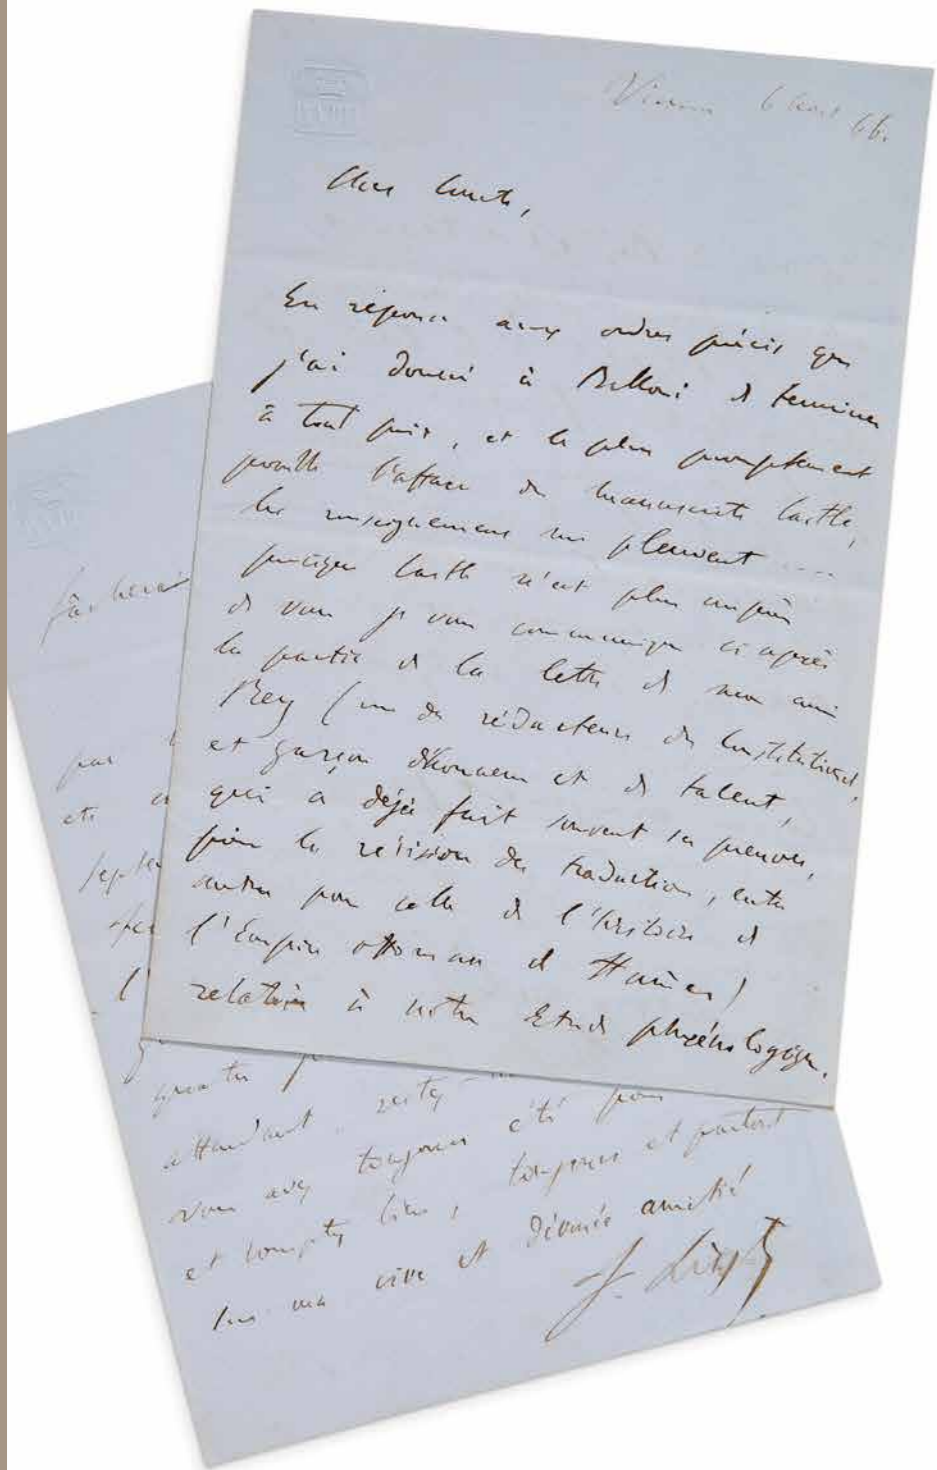 Vienne 6 Avril 46.
Cher Comte,
En réponse aux ordres précis que
j'ai donné à Belloni de terminer
à tout prix, et le plus promptement
possible l'affaire du manuscrit Castle,
les renseignemens me pleuvent ....
puisque Castle n'est plus auprès
de vous je vous communique ci après
la partie de la lettre de mon ami
Rey (un des rédacteurs du Constitutionel,
et garçon d'honneur et de talent,
qui a déjà fait souvent ses preuves,
pour la révision de traduction, entre
autres pour celle de l'histoire de
l'Empire ottoman de Hammer)
relative à notre Etude phrénologique.
fâcheux
par
été
septem
l'
quatre
attendant, restez
vous avez toujours été pour
et comptez bien, toujours et partout
sur ma vive et dévouée amitié
F. Liszt